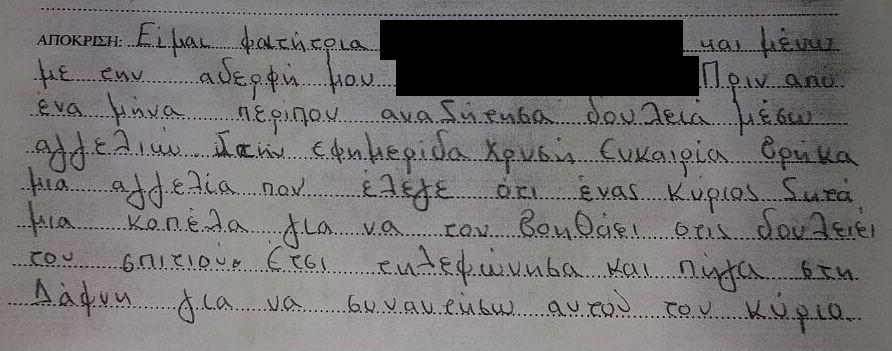 ΑΠΟΚΡΙΣΗ: Είμαι φοιτήτρια και μένω
με την αδερφή μου Πριν από
ένα μήνα περίπου αναζήτησα δουλειά μέσω
αγγελιών. Στην εφημερίδα Χρυσή Ευκαιρία βρήκα
μια αγγελία που έλεγε ότι ένας κύριος ζητά
μια κοπέλα για να τον βοηθάει στις δουλειές
του σπιτιού. Έτσι τηλεφώνησα και πήγα στη
Δάφνη για να συναντήσω αυτού του κύριο